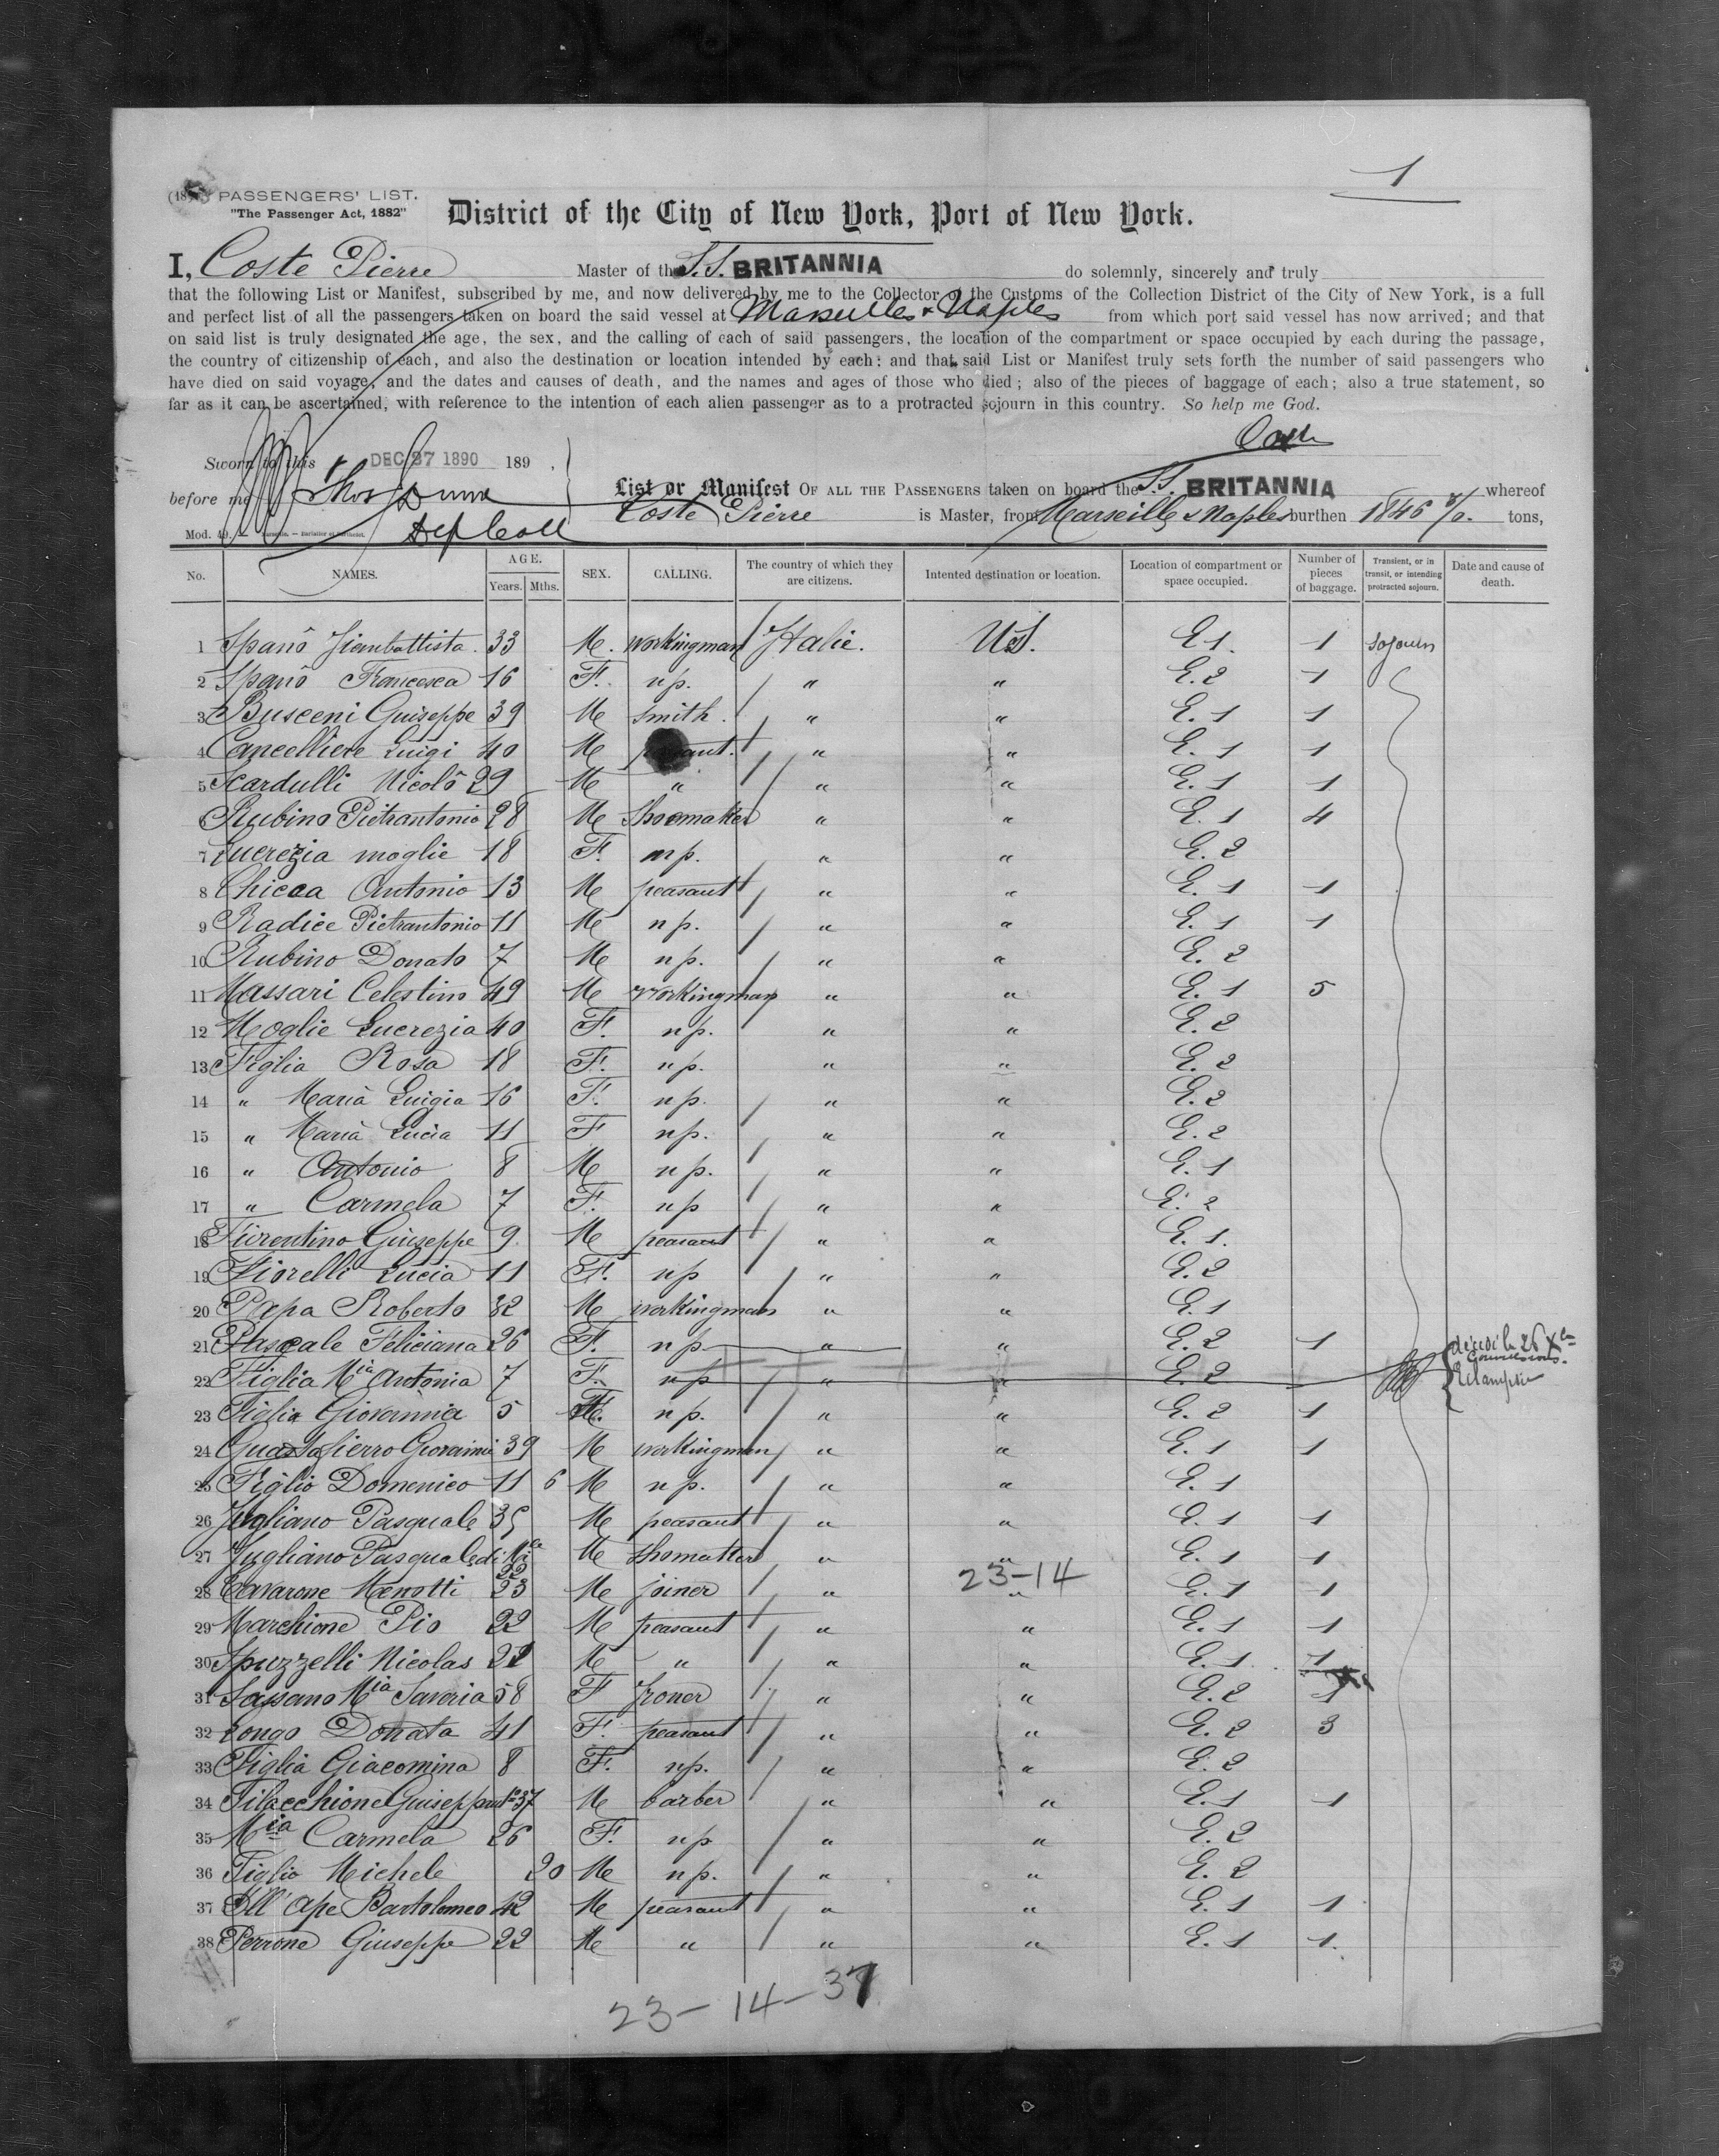 1
PASSENGERS' LIST.
"The Passenger Act, 1882"
District of the City of New York, Port of New York.
I, Coste Pierre Master of the S.S. BRITANNIA do solemnly, sincerely and truly
that the following List or Manifest, subscribed by me, and now delivered by me to the Collector of the Customs of the Collection District of the City of New York, is a full
and perfect list of all the passengers taken on board the said vessel at Marseilles & Naples from which port said vessel has now arrived; and that
on said list is truly designated the age, the sex, and the calling of each of said passengers, the location of the compartment or space occupied by each during the passage,
the country of citizenship of each, and also the destination or location intended by each: and that said List or Manifest truly sets forth the number of said passengers who
have died on said voyage, and the dates and causes of death, and the names and ages of those who died; also of the pieces of baggage of each; also a true statement, so
far as it can be ascertained, with reference to the intention of each alien passenger as to a protracted sojourn in this country. So help me God.
Coste
Sworn to this DEC 27 1890 189 ,
before me
List or Manifest OF ALL THE PASSENGERS taken on board the S.S. BRITANNIA whereof
Coste Pierre is Master, from Marseille & Naples burthen 1846 tons,
Mod. 49. Dep Coll
No. NAMES. AGE. Years. Mths. SEX. CALLING. The country of which they are citizens. Intented destination or location. Location of compartment or space occupied. Number of pieces of baggage. Transient, or in transit, or intending protracted sojourn. Date and cause of death.
1 Spanô Jiambattista. 33 M. workingman Italie. US. E 1. 1 sojourn
2 Spanô Francesca 16 F. np. " " E. 2 1
3 Busceni Guiseppe 39 M smith. " " E. 1 1
4 Cancelliere Luigi 40 M peasant. " " E. 1 1
5 Scardulli Nicolô 29 M " " " E. 1 1
6 Rubino Pietrantonio 28 M shoemaker " " E. 1 4
7 Lucrezia moglie 18 F. np. " " E. 2
8 Chicca Antonio 13 M peasant " " E. 1 1
9 Radice Pietrantonio 11 M np. " " E. 1 1
10 Rubino Donato 7 M np. " " E. 2
11 Massari Celestino 49 M workingman " " E. 1 5
12 Moglie Lucrezia 40 F. np. " " E. 2
13 Figlia Rosa 18 F. np. " " E. 2
14 " Maria Luigia 16 F. np. " " E. 2
15 " Maria Lucia 11 F np. " " E. 2
16 " Antonio 8 M np. " " E. 1
17 " Carmela 7 F. np " " E. 2
18 Fiorentino Giuseppe 9 M peasant " " E. 1.
19 Fiorelli Lucia 11 F. np " " E. 2
20 Papa Roberto 32 M workingman " " E. 1
21 Pascale Feliciana 26 F. np " " E. 2 1
22 Figlia Mia Antonia 7 F. np " " E. 2 décédé le 26 Xbre Eclampsie
23 Figlia Giovannia 5 F. np. " " E. 2 1
24 Guastafierro Giovanni 39 M workingman " " E. 1 1
25 Figlio Domenico 11 6 M np. " " E. 1
26 Jugliano Pasquale 35 M peasant " " E. 1 1
27 Jugliano Pasquale di 22 M shomatker " " E. 1 1
23-14
28 Cavarone Menotti 23 M joiner " " E. 1 1
29 Marchione Pio 22 M peasant " " E. 1 1
30 Spuzzelli Nicolas 22 M " " " E. 1 1
31 Sassano Mia Saveria 58 F Jroner " " E. 2 1
32 Longo Donata 41 F. peasant " " E. 2 3
33 Figlia Giacomina 8 F. np. " " E. 2
34 Filacchione 37 M barber " " E. 1 1
35 Mia Carmela 26 F. np " " E. 2
36 Figlio Michele 20 M np. " " E. 2
37 Dell' Ape Bartolomeo 42 M peasant " " E. 1 1
38 Perrone Giuseppe 22 M " " " E. 1 1.
23-14-37